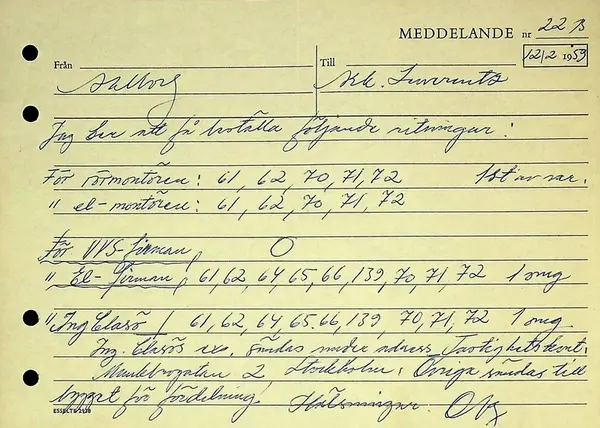 MEDDELANDE nr 22 B
Från Till 12/2 1959
Aalborg Ark. Lewerentz
Jag ber att få beställa följande ritningar:
För rörmontören: 61, 62, 70, 71, 72 1 st av var.
" el-montören: 61, 62, 70, 71, 72
För VVS-firman, O
" El-firman, 61, 62, 64, 65, 66, 139, 70, 71, 72 1 omg
" Ing Clasö / 61, 62, 64, 65, 66, 139, 70, 71, 72 1 omg
Ing. Clasös ex. sändas under adress, Fastighetskont.
2, Stockholm. Övriga sändas till
bygget för fördelning. Hälsningar.
ESSELTE 2128